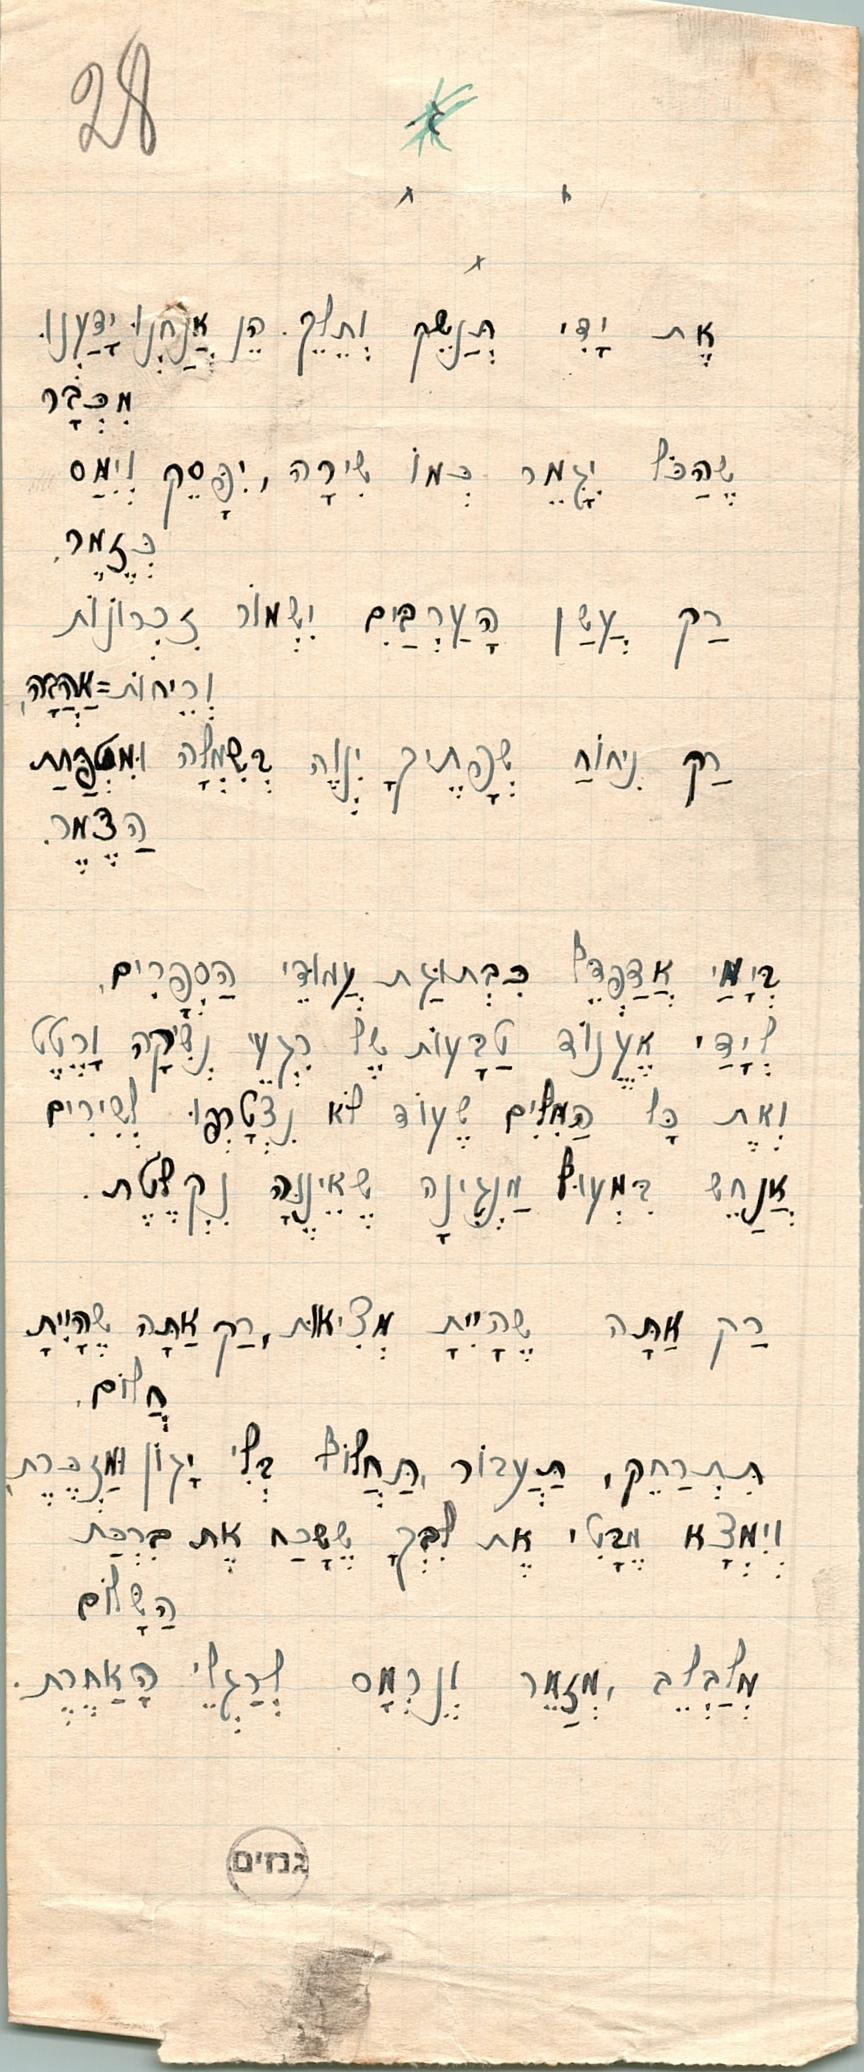 28
אֶת יָדִי תְּנַשֵּׁק וְתֵלֵךְ. הֵן אֲנַחְנוּ יָדַעְנוּ
מִכְּבָר
שֶׁהַכֹּל יִגָּמֵר כְּמוֹ שִׁירָה, יִפָּסֵק וְיִמַּס
כְּזֶמֶר.
רַק עֲשַׁן הָעַרְבַּיִם יִשְׁמוֹר זִכְרוֹנוֹת
וְרֵיחוֹת=אַהֲבָה,
רַק נִיחוֹחַ שְׂפָתֶיךָ יִנְוֶה בְּשִׂמְלָה וּמִטְפַּחַת
הַצֶּמֶר.
בְּיָמַי אֲדַפְדֵּף כִּבְתוּגַת עֲמוּדֵי הַסְּפָרִים,
לְיָדַי אֶעֱנוֹד טַבָּעוֹת שֶׁל רִגְעֵי נְשִׁיקָה וָרֶטֶט
וְאֶת כָּל הַמִּלִּים שֶׁעוֹד לֹא נִצְטָרְפוּ לְשִׁירִים
אֲנַחֵשׁ בִּמְעוּף מַנְגִּינָה שֶׁאֵינֶנָּה נִקְלֶטֶת.
רַק אַתָּה שֶׁהָיִיתָ מְצִיאוּת, רַק אַתָּה שֶׁהָיִיתָ
חֲלוֹם,
תִּתְרַחֵק, תַּעֲבוֹר, תַּחֲלוֹף בְּלִי יָגוֹן וּמַזְכֶּרֶת,
וְיִמְצָא מֶבָּטִי אֶת לִבְּךָ שֶׁשָּׁכַח אֶת בִּרְכַּת
הַשָּׁלוֹם
מְלַבְלֵב, מְזַמֵּר וְנִרְמָס לְרַגְלֵי הָאַחֶרֶת.
גנזים